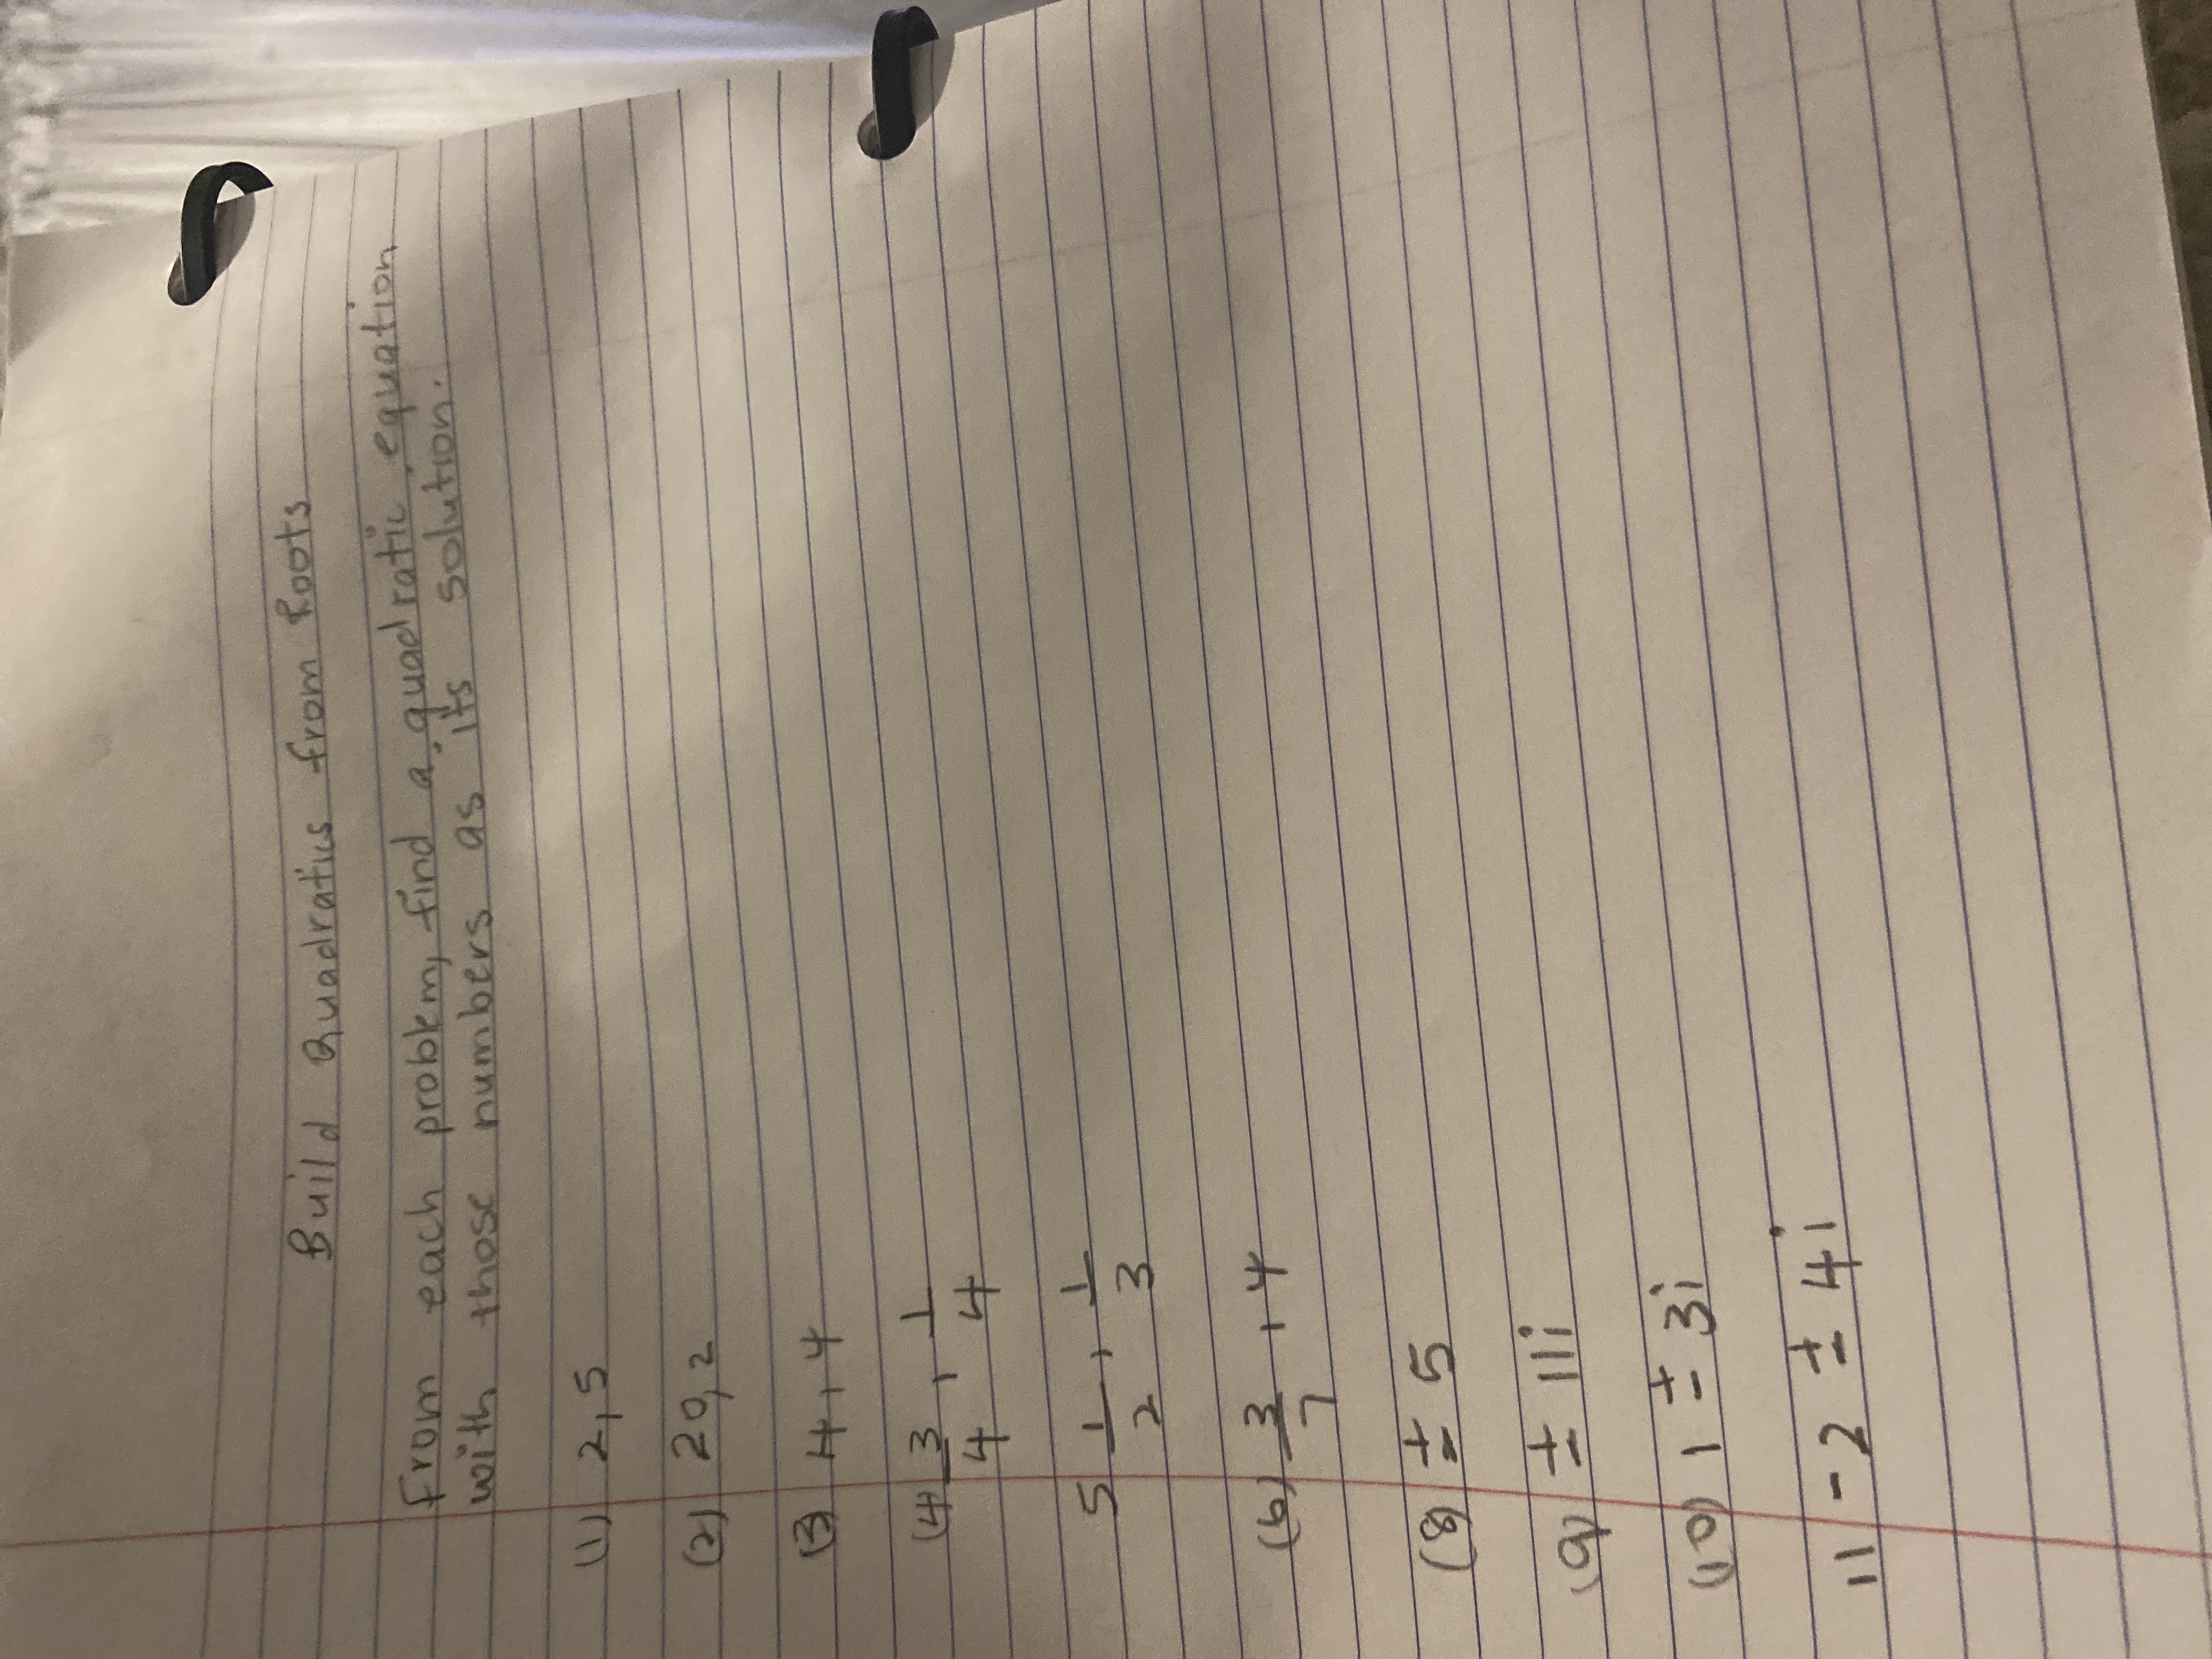 Build Quadratics from Roots
From each problem, find a quadratic equation
with those numbers as its solution.
(1) 2, 5
(2) 20, 2
(3) 4, 4
(4) 3/4, 1/4
5 1/2, 1/3
(6) 3/7, 4
(8) ± 5
(9) ± 11i
(10) 1 ± 3i
11 -2 ± 4i